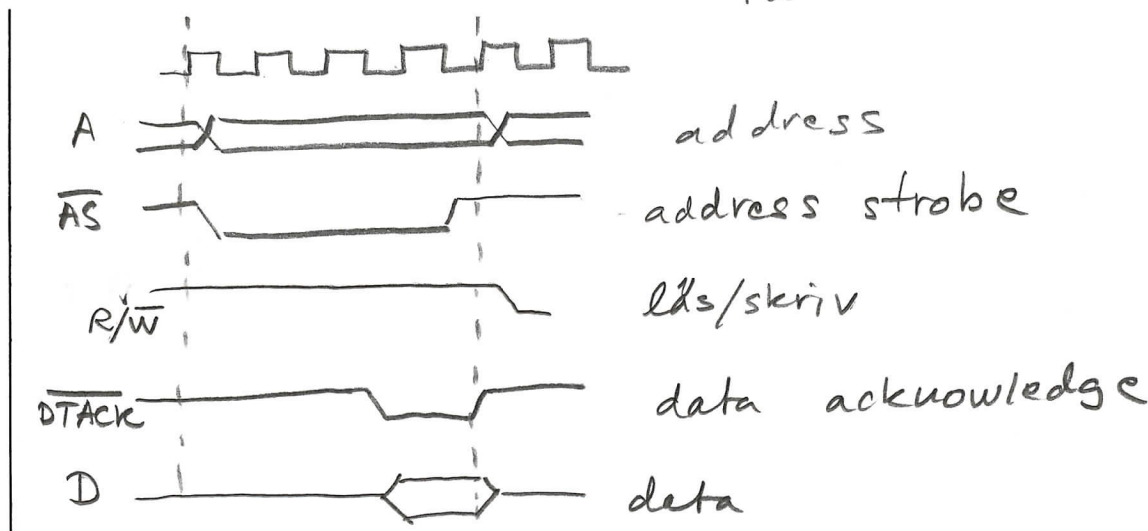 A address
A̅S̅ address strobe
R/W̅ läs/skriv
D̅T̅A̅C̅K̅ data acknowledge
D data